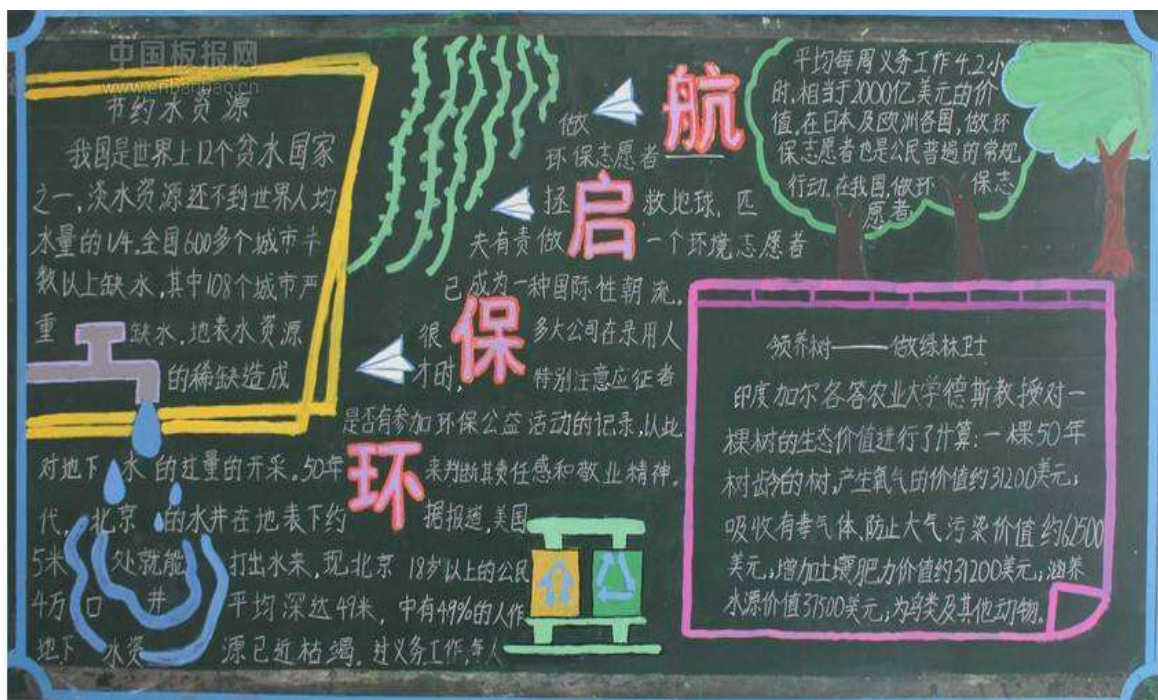 中国板报网
www.cnbanbao.cn
节约水资源
我国是世界上12个贫水国家
之一,淡水资源还不到世界人均
水量的1/4.全国600多个城市半
数以上缺水,其中108个城市严
重缺水,地表水资源
的稀缺造成
对地下水的过量的开采。50年
代,北京的水井在地表下约
5米处就能打出水来,现北京
4万口井平均深达49米,
地下水资源已近枯竭.
环保启航
做
环保志愿者
拯救地球,匹
夫有责做一个环境志愿者
已成为一种国际性朝流,
很多大公司在录用人
才时,特别注意应征者
是否有参加环保公益活动的记录,以此
来判断其责任感和敬业精神。
据报道,美国
18岁以上的公民
中有49%的人作
过义务工作,每人
平均每周义务工作4.2小
时,相当于2000亿美元的价
值,在日本及欧洲各国,做环
保志愿者也是公民普遍的常规
行动,在我国,做环保志
愿者
领养树——做绿林卫士
印度加尔各答农业大学德斯教授对一
棵树的生态价值进行了计算:一棵50年
树龄的树,产生氧气的价值约31200美元;
吸收有毒气体、防止大气污染价值约62500
美元;增加土壤肥力价值约31200美元;涵养
水源价值37500美元;为鸟类及其他动物。